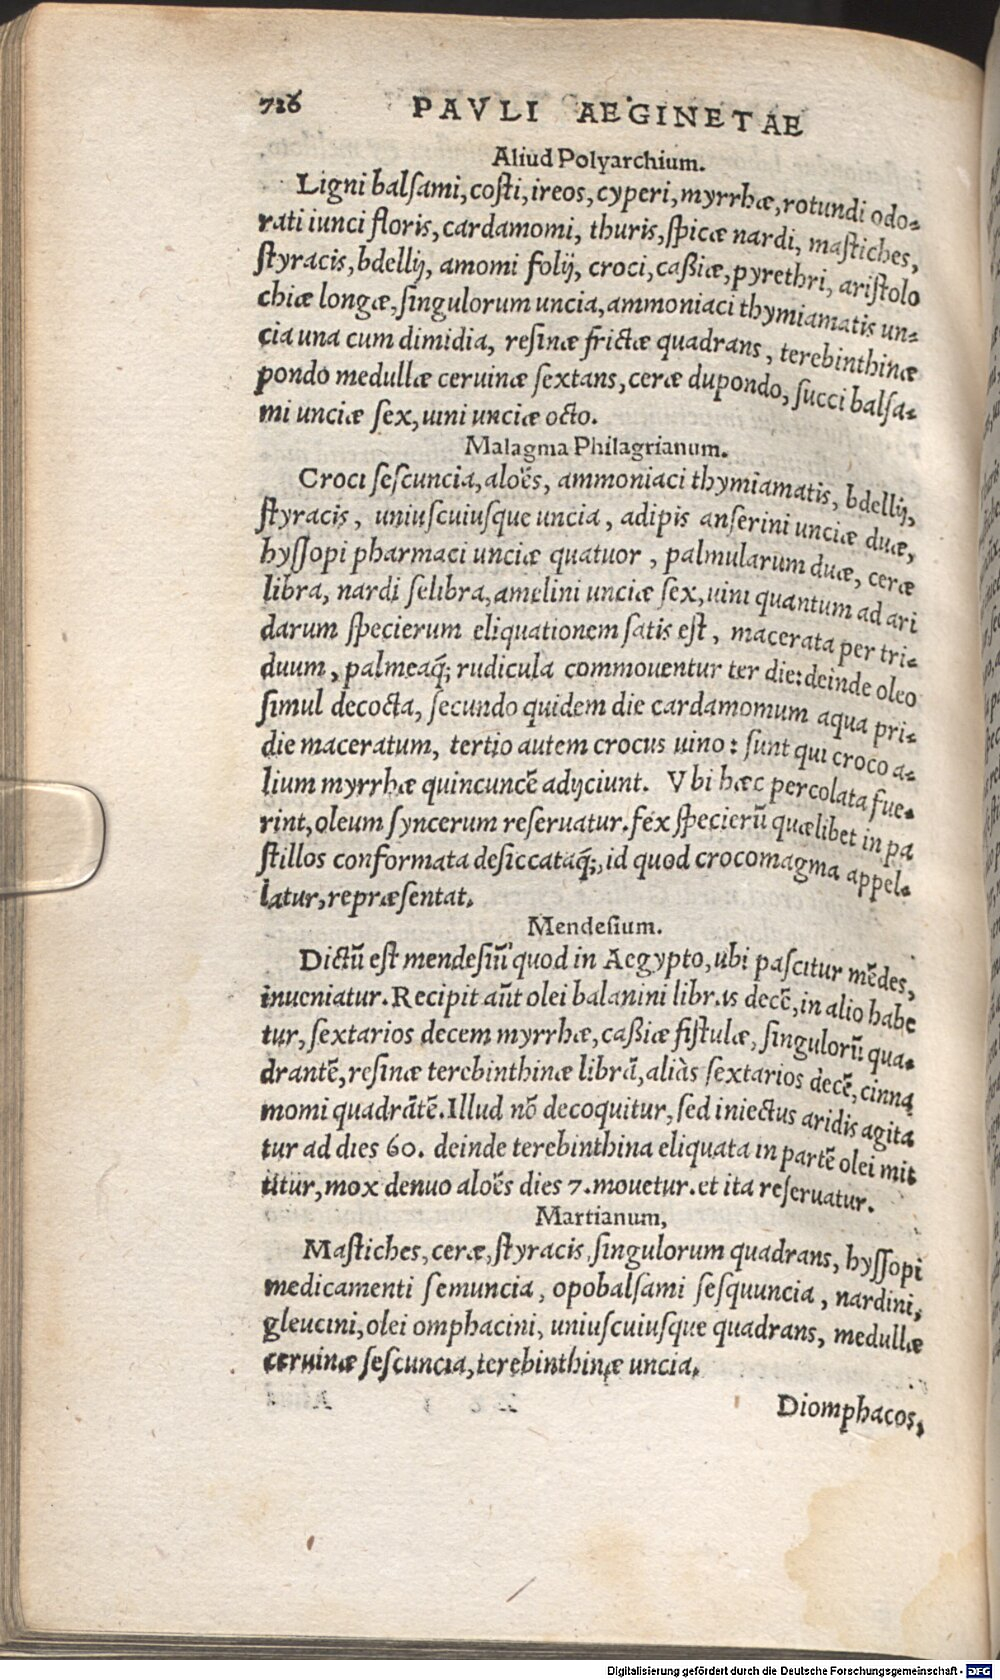 716 PAVLI AEGINETAE
Aliud Polyarchium.
Ligni balſami, coſti, ireos, cyperi, myrrhæ, rotundi odo-
rati iunci floris, cardamomi, thuris, ſpicæ nardi, maſtiches,
ſtyracis, bdellij, amomi folij, croci, caßiæ, pyrethri, ariſtolo
chiæ longæ, ſingulorum uncia, ammoniaci thymiamatis un-
cia una cum dimidia, reſinæ frictæ quadrans, terebinthinæ
pondo medullæ ceruinæ ſextans, ceræ dupondo, ſucci balſa-
mi unciæ ſex, uini unciæ octo.
Malagma Philagrianum.
Croci ſeſcuncia, aloës, ammoniaci thymiamatis, bdellij,
ſtyracis, uniuſcuiuſque uncia, adipis anſerini unciæ duæ,
hyſſopi pharmaci unciæ quatuor, palmularum duæ, ceræ
libra, nardi ſelibra, amelini unciæ ſex, uini quantum ad ari
darum ſpecierum eliquationem ſatis eſt, macerata per tri-
duum, palmeaq́; rudicula commouentur ter die: deinde oleo
ſimul decocta, ſecundo quidem die cardamomum aqua pri-
die maceratum, tertio autem crocus uino: ſunt qui croco a-
lium myrrhæ quincuncẽ adijciunt. Vbi hæc percolata fue-
rint, oleum ſyncerum reſeruatur. fex ſpecierũ quælibet in pa
ſtillos conformata deſiccataq́;, id quod crocomagma appel-
latur, repræſentat.
Mendeſium.
Dictũ eſt mendeſiũ quod in Aegypto, ubi paſcitur mẽdes,
inueniatur. Recipit aũt olei balanini libras decẽ, in alio habe
tur, ſextarios decem myrrhæ, caßiæ fiſtulæ, ſingulorũ qua-
drantẽ, reſinæ terebinthinæ librã, aliàs ſextarios decẽ, cinna
momi quadrãtẽ. Illud nõ decoquitur, ſed iniectus aridis agita
tur ad dies 60. deinde terebinthina eliquata in partẽ olei mit
titur, mox denuo aloës dies 7. mouetur. et ita reſeruatur.
Martianum,
Maſtiches, ceræ, ſtyracis ſingulorum quadrans, hyſſopi
medicamenti ſemuncia, opobalſami ſeſquuncia, nardini,
gleucini, olei omphacini, uniuſcuiuſque quadrans, medullæ
ceruinæ ſeſcuncia, terebinthinæ uncia.
Diomphacos,
Digitalisierung gefördert durch die Deutsche Forschungsgemeinschaft - DFG